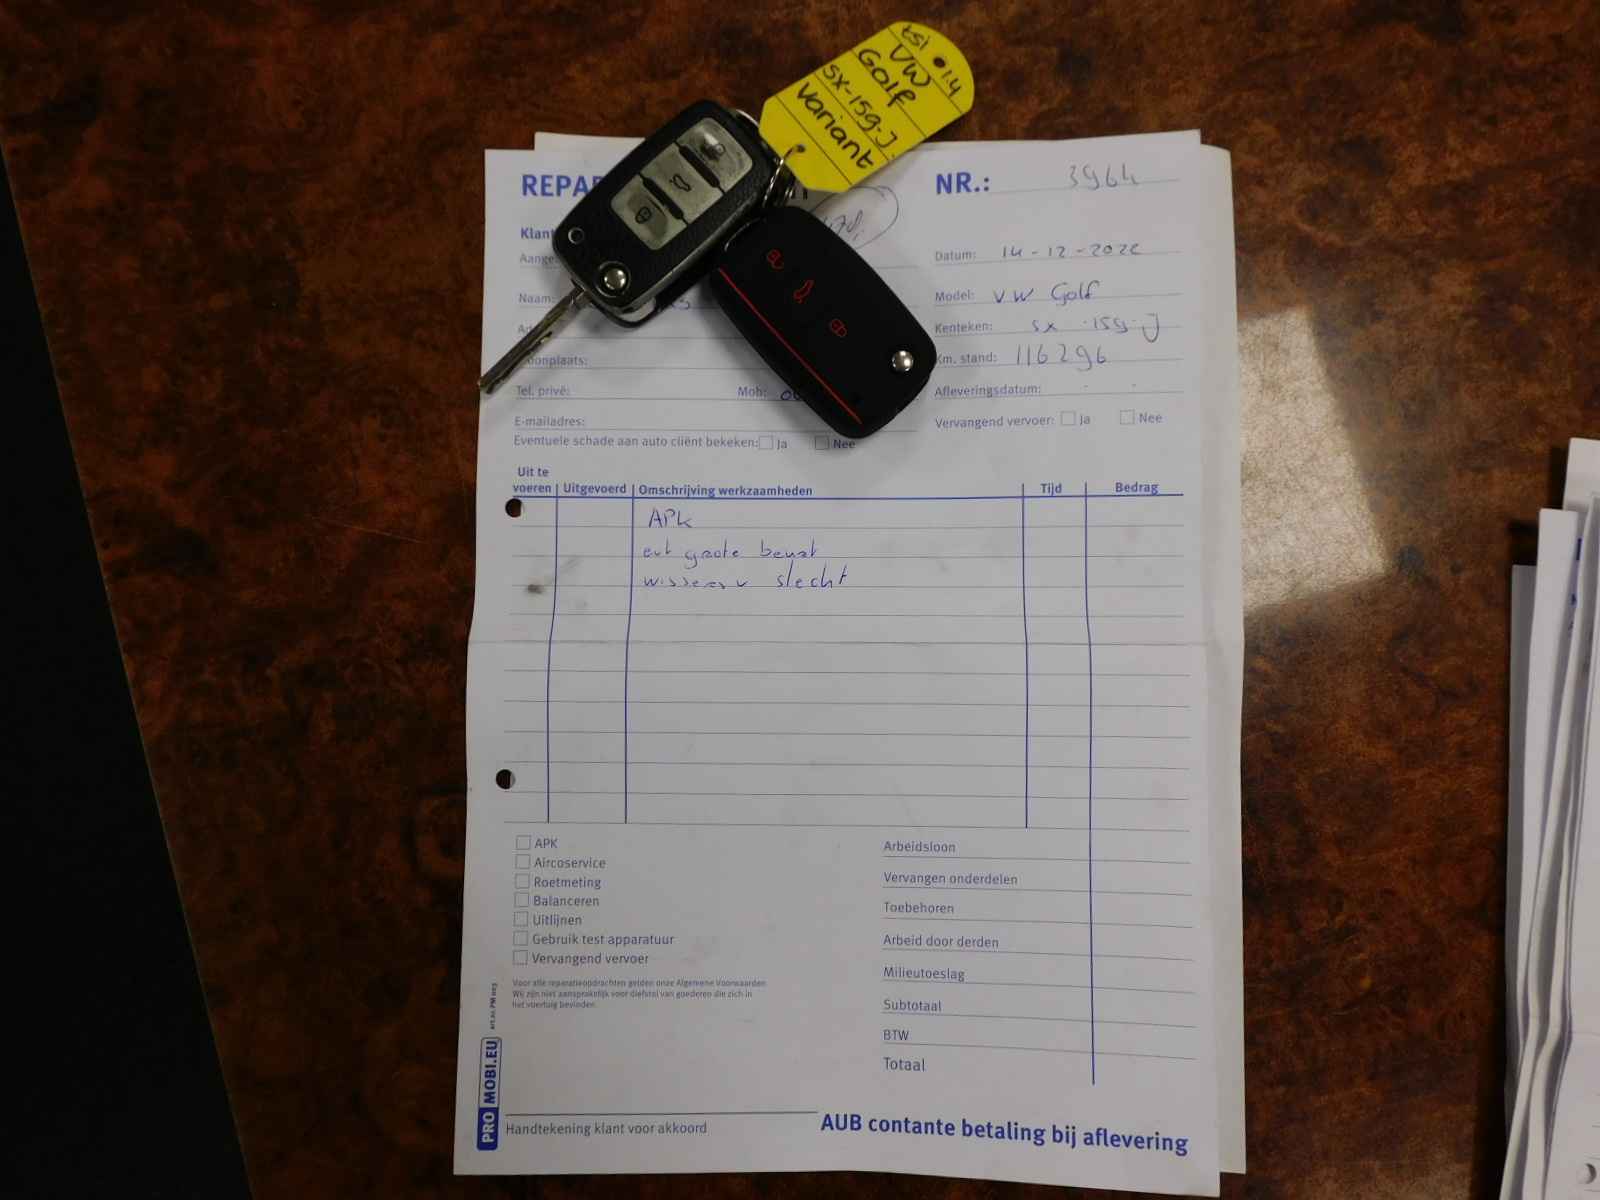 tsi 1.4
VW
Golf
SX-159-J
Variant
NR.: 3964
Datum: 14-12-2022
Naam:
Model: VW Golf
Kenteken: SX-159-J
Km. stand: 116296
Tel. privé: Mob:
Afleveringsdatum:
E-mailadres:
Vervangend vervoer: Ja Nee
Eventuele schade aan auto cliënt bekeken: Ja Nee
Uit te
voeren Uitgevoerd Omschrijving werkzaamheden Tijd Bedrag
APK
evt grote beurt
wissers v slecht
APK
Aircoservice
Roetmeting
Balanceren
Uitlijnen
Gebruik test apparatuur
Vervangend vervoer
Voor alle reparatieopdrachten gelden onze Algemene Voorwaarden
Wij zijn niet aansprakelijk voor diefstal van goederen die zich in
het voertuig bevinden.
Arbeidsloon
Vervangen onderdelen
Toebehoren
Arbeid door derden
Milieutoeslag
Subtotaal
BTW
Totaal
PROMOBI.EU
Handtekening klant voor akkoord
AUB contante betaling bij aflevering